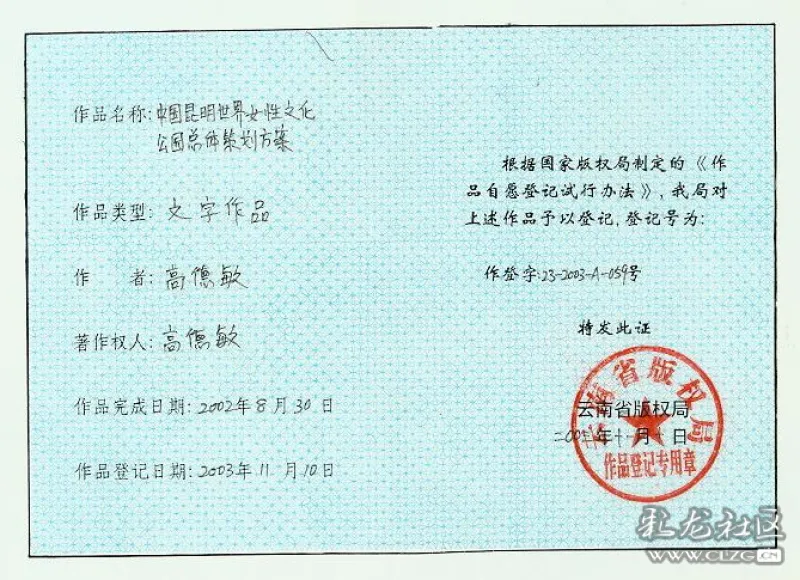 作品名称:中国昆明世界女性文化
公园总体策划方案
作品类型:文字作品
作 者:高德敏
著作权人:高德敏
作品完成日期:2002年8月30日
作品登记日期:2003年11月10日
根据国家版权局制定的《作
品自愿登记试行办法》,我局对
上述作品予以登记,登记号为:
作登字:23-2003-A-059号
特发此证
云南省版权局
云南省版权局
二00三年十一月十日
作品登记专用章
彩龙社区
WWW.CLZG.CN